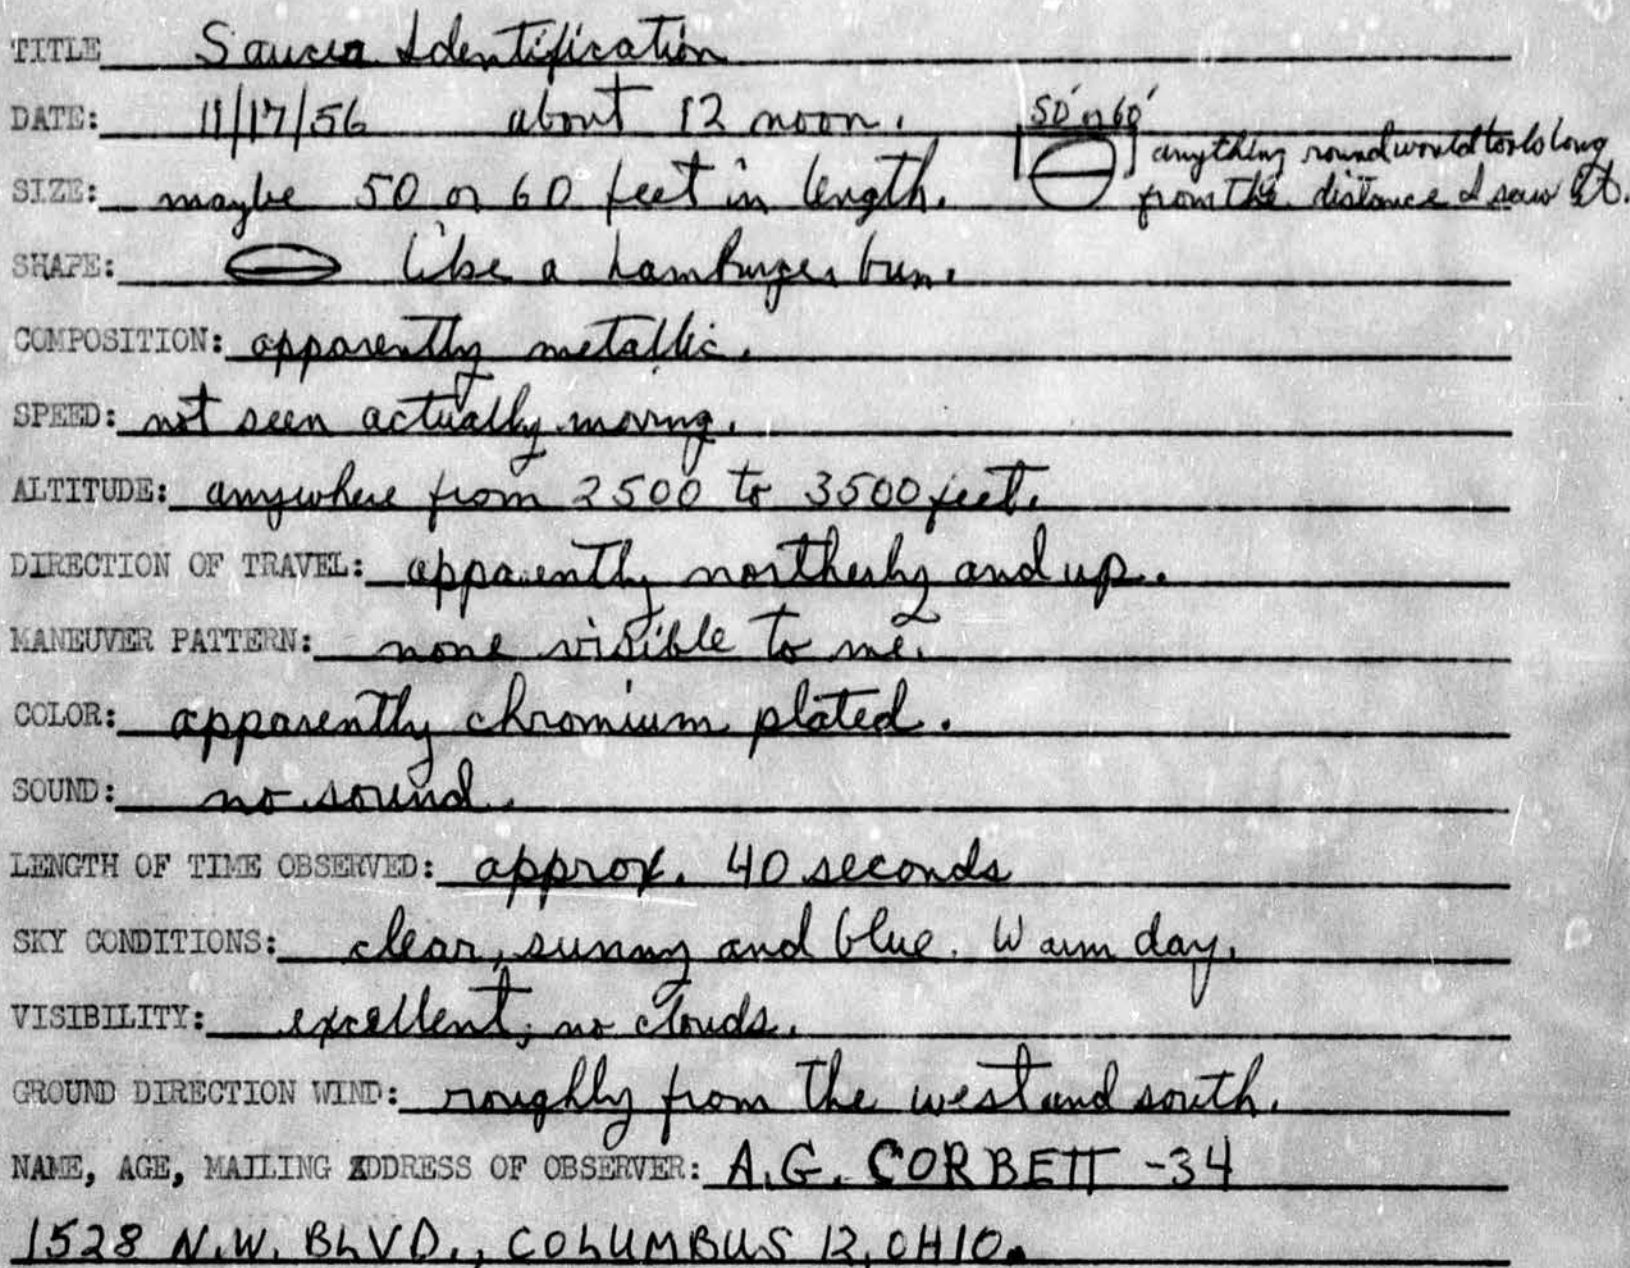 TITLE Saucer Identification
DATE: 11/17/56 about 12 noon. 50' or 60'
anything round would look long
SIZE: maybe 50 or 60 feet in length. from the distance I saw it.
SHAPE: like a hamburger bun.
COMPOSITION: apparently metallic.
SPEED: not seen actually moving.
ALTITUDE: anywhere from 2500 to 3500 feet.
DIRECTION OF TRAVEL: apparently northerly and up.
MANEUVER PATTERN: none visible to me.
COLOR: apparently chromium plated.
SOUND: no sound.
LENGTH OF TIME OBSERVED: approx. 40 seconds
SKY CONDITIONS: clear, sunny and blue. Warm day.
VISIBILITY: excellent, no clouds.
GROUND DIRECTION WIND: roughly from the west and south.
NAME, AGE, MAILING ADDRESS OF OBSERVER: A.G. CORBETT -34
1528 N.W. BLVD., COLUMBUS 12, OHIO.